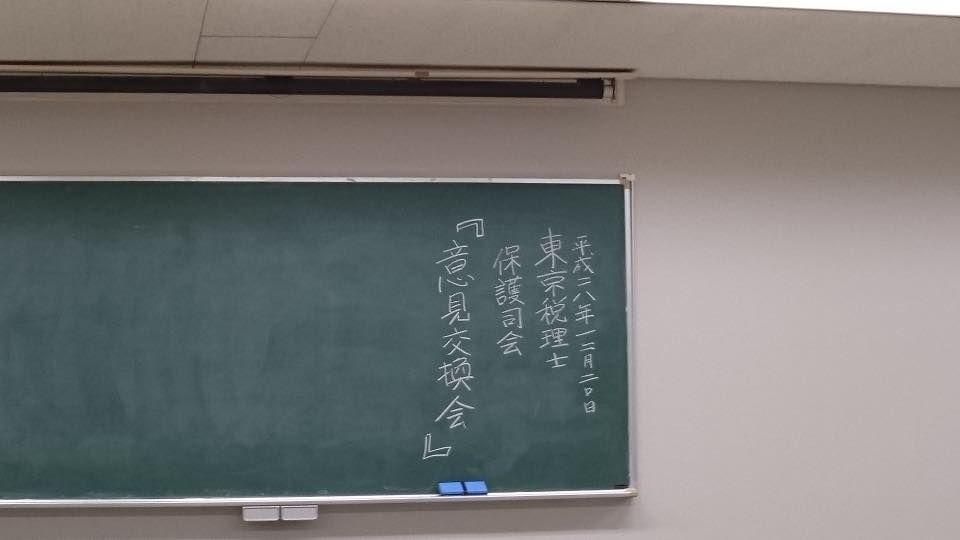 平成二八年一二月二〇日
東京税理士
保護司会
『意見交換会』